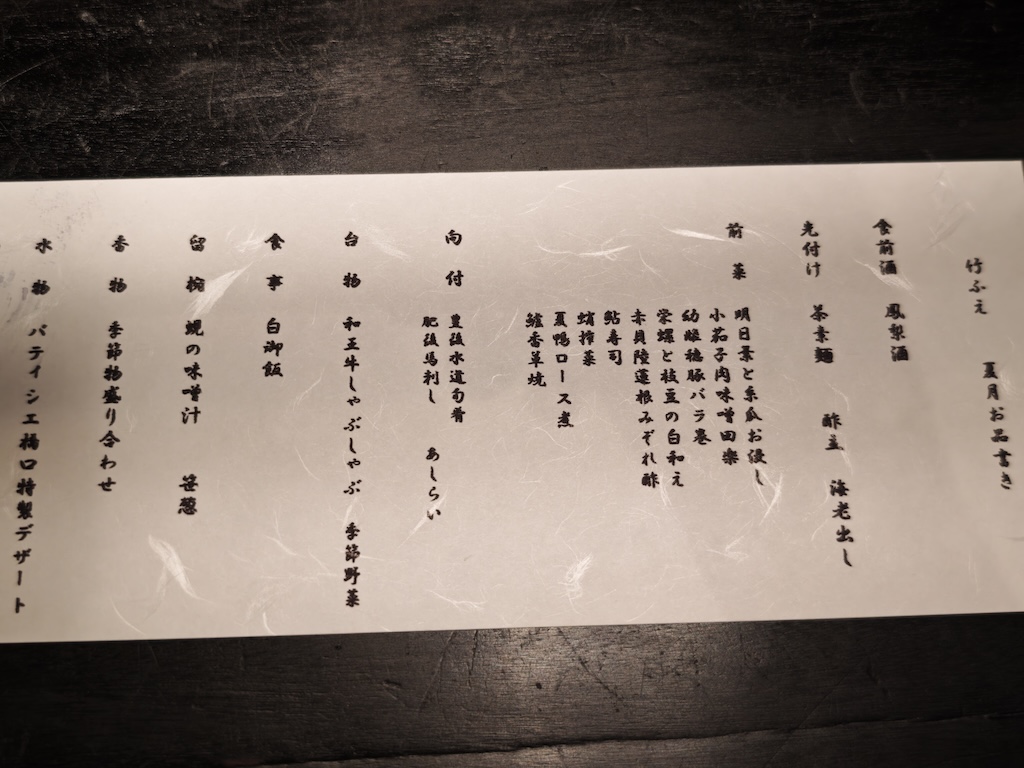 竹ふえ 夏月お品書き
食前酒 鳳梨酒
先付け 茶素麺 酢立 海老出し
前菜 明日葉と糸瓜お浸し
小茄子肉味噌田楽
幼姫穂豚バラ巻
栄螺と枝豆の白和え
赤貝陸蓮根みぞれ酢
鮎寿司
蛸搾菜
夏鴨ロース煮
鱸香草焼
向付 豊後水道旬肴
肥後馬刺し あしらい
台物 和王牛しゃぶしゃぶ 季節野菜
食事 白御飯
留椀 蜆の味噌汁 笹葱
香物 季節物盛り合わせ
水物 パティシエ橋口特製デザート